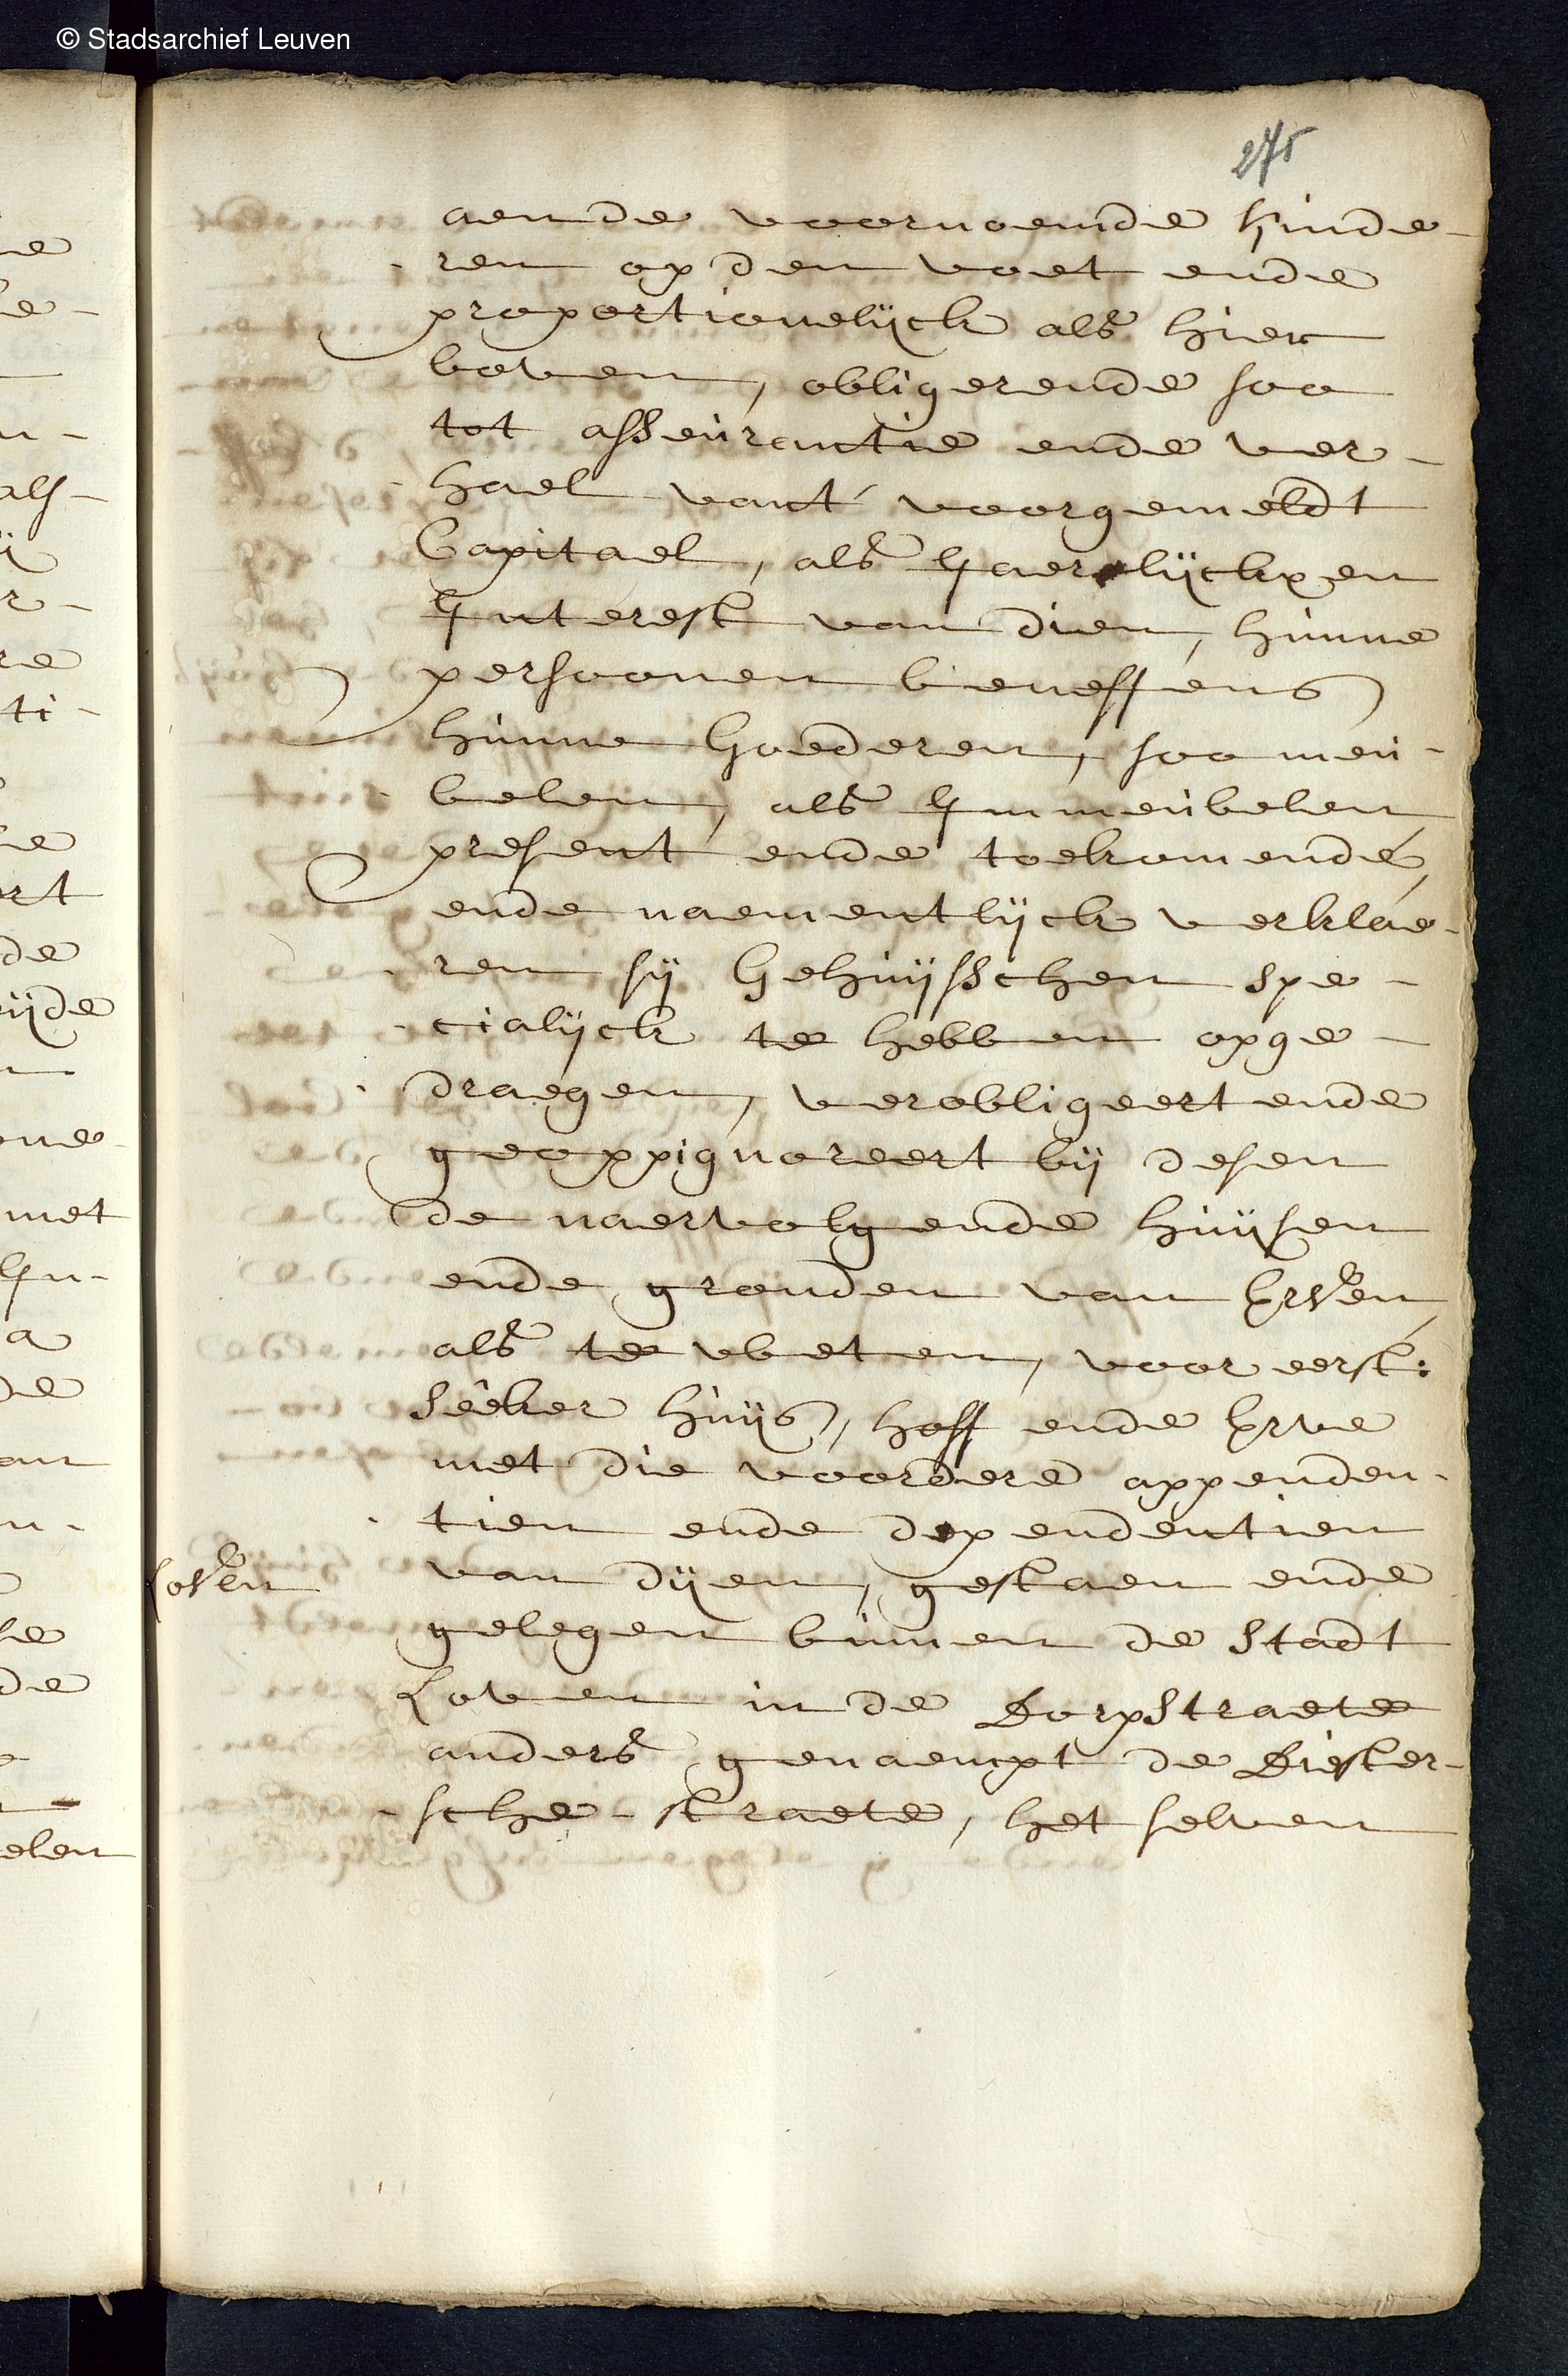 © Stadsarchief Leuven
275
aende voornoemde kinde-
ren op den voet ende
proportionelijck als hier
boven, obligerende soo
tot asseurantie ende ver-
hael vant voorgemeldt
Capitael, als Jaerelijckxen
Interest van dien, hunne
persoonen beneffens
hunne Goederen, soo meu-
belen, als Immeubelen
present ende toekomende,
ende naementlijck verklae-
ren sij Gehuijsschen spe-
cialijck te hebben opge-
draegen, verobligeert ende
geoppignoreert bij desen
de naervolgende huijsen
ende gronden van Erven,
als te weten, voor eerst:
Seker huijs, hoff ende Erve
met die voordere appenden-
tien ende dependentien
Loven
van dijen, gestaen ende
gelegen binnen de Stadt
Loven in de DorpStraete
anders genaempt de Diester-
sche-straete, het selven